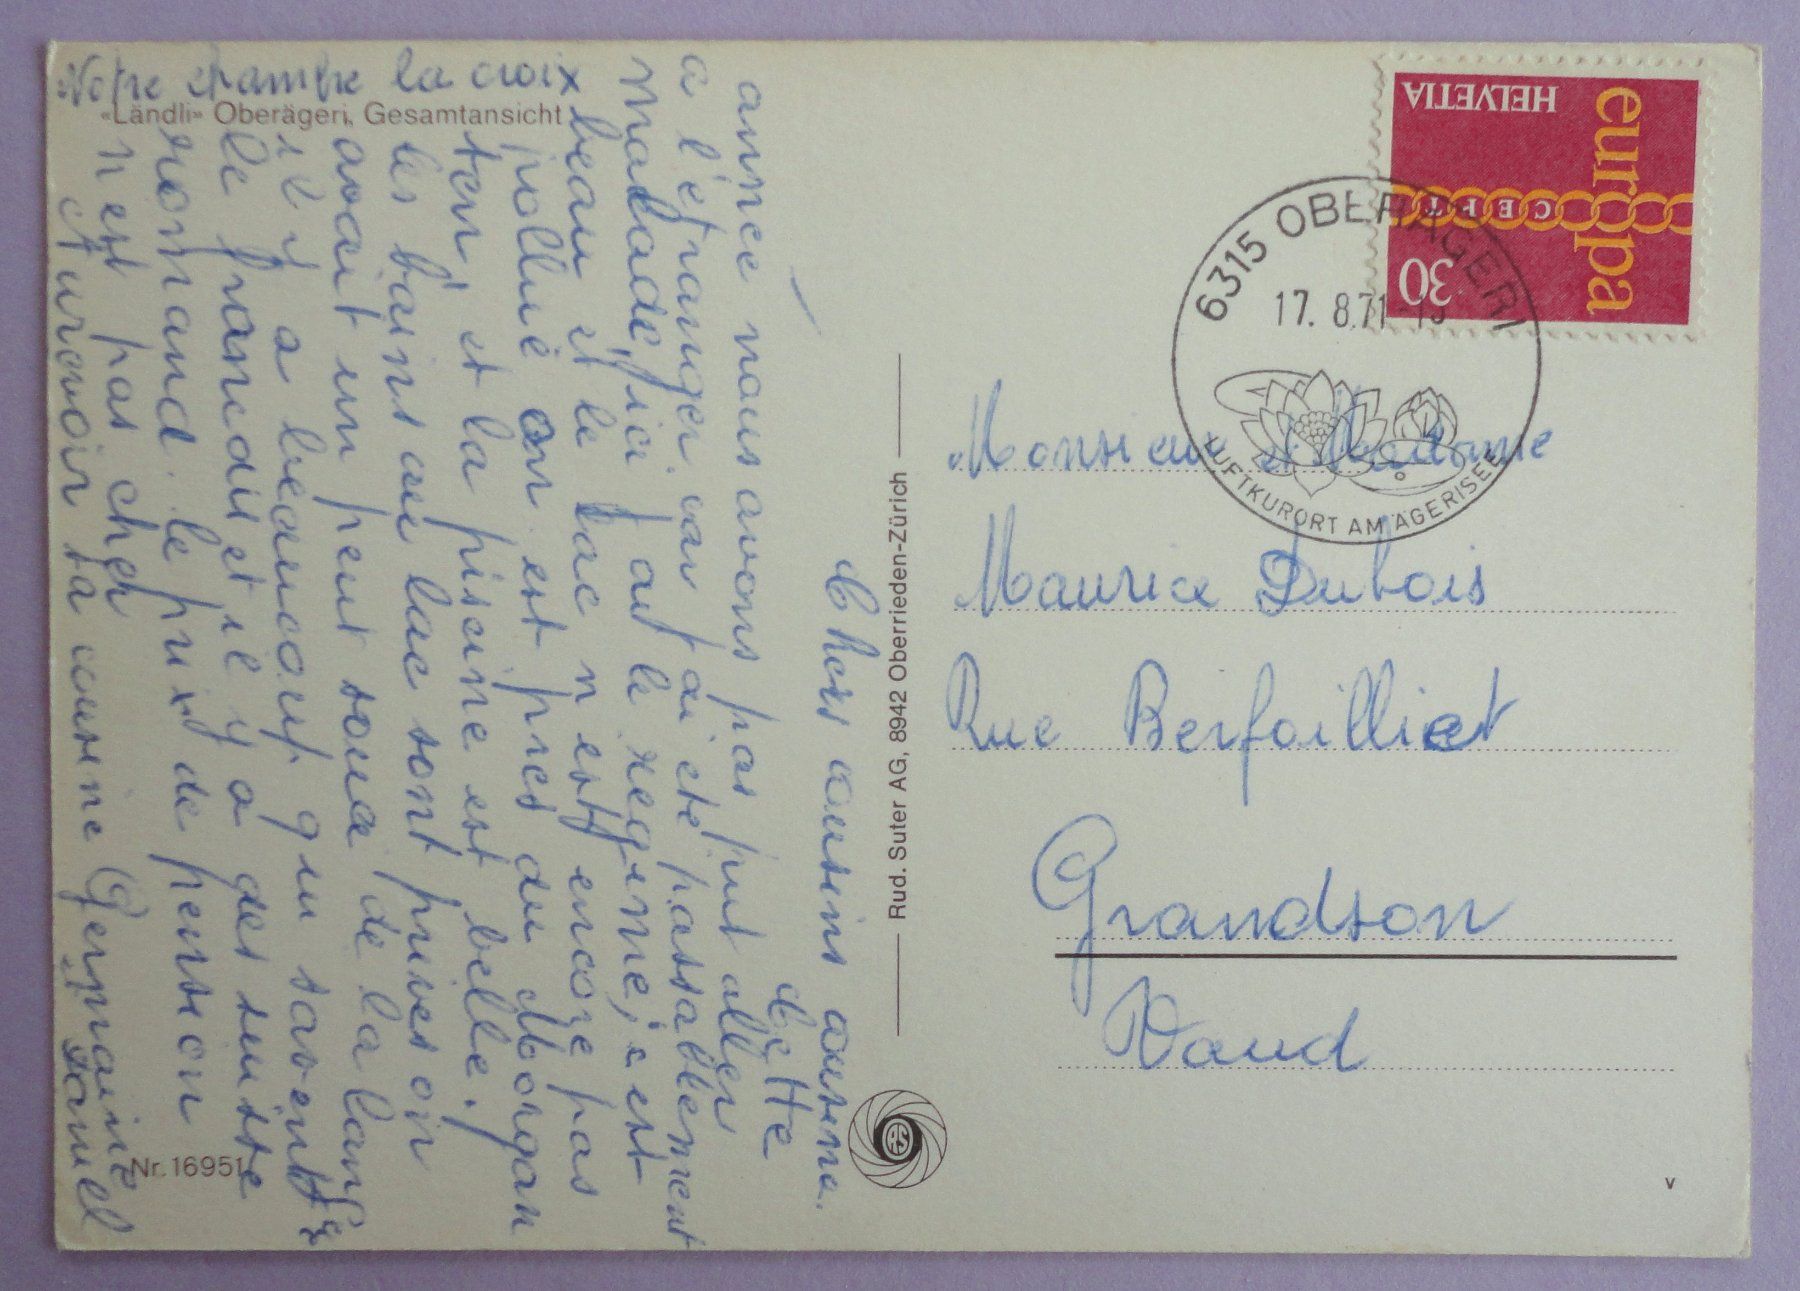 Notre chambre la croix
«Ländli» Oberägeri, Gesamtansicht
Chers cousins cousine.
Cette
année nous avons pas put aller
a l'étranger. car j ai été passablement
malade, j'ici le regime, c est
beau et le lac n est encore pas
pollué on est pres du Morgar
ten et la piscine est belle.
les bains au lac sont privés on
avait un peut souci de la lang
il y a beaucoup qui savent
le francais et il y a des suisse
romand. le prix de pension
n est pas cher
et urevoir ta cousine Germaine
Samuel
Nr. 16951
Rud. Suter AG, 8942 Oberrieden-Zürich
RS
HELVETIA
europa
CEPT
30
6315 OBERÄGERI
17.8.71
LUFTKURORT AM ÄGERISEE
Monsieur et Madame
Maurice Dubois
Rue
Grandson
Vaud
v